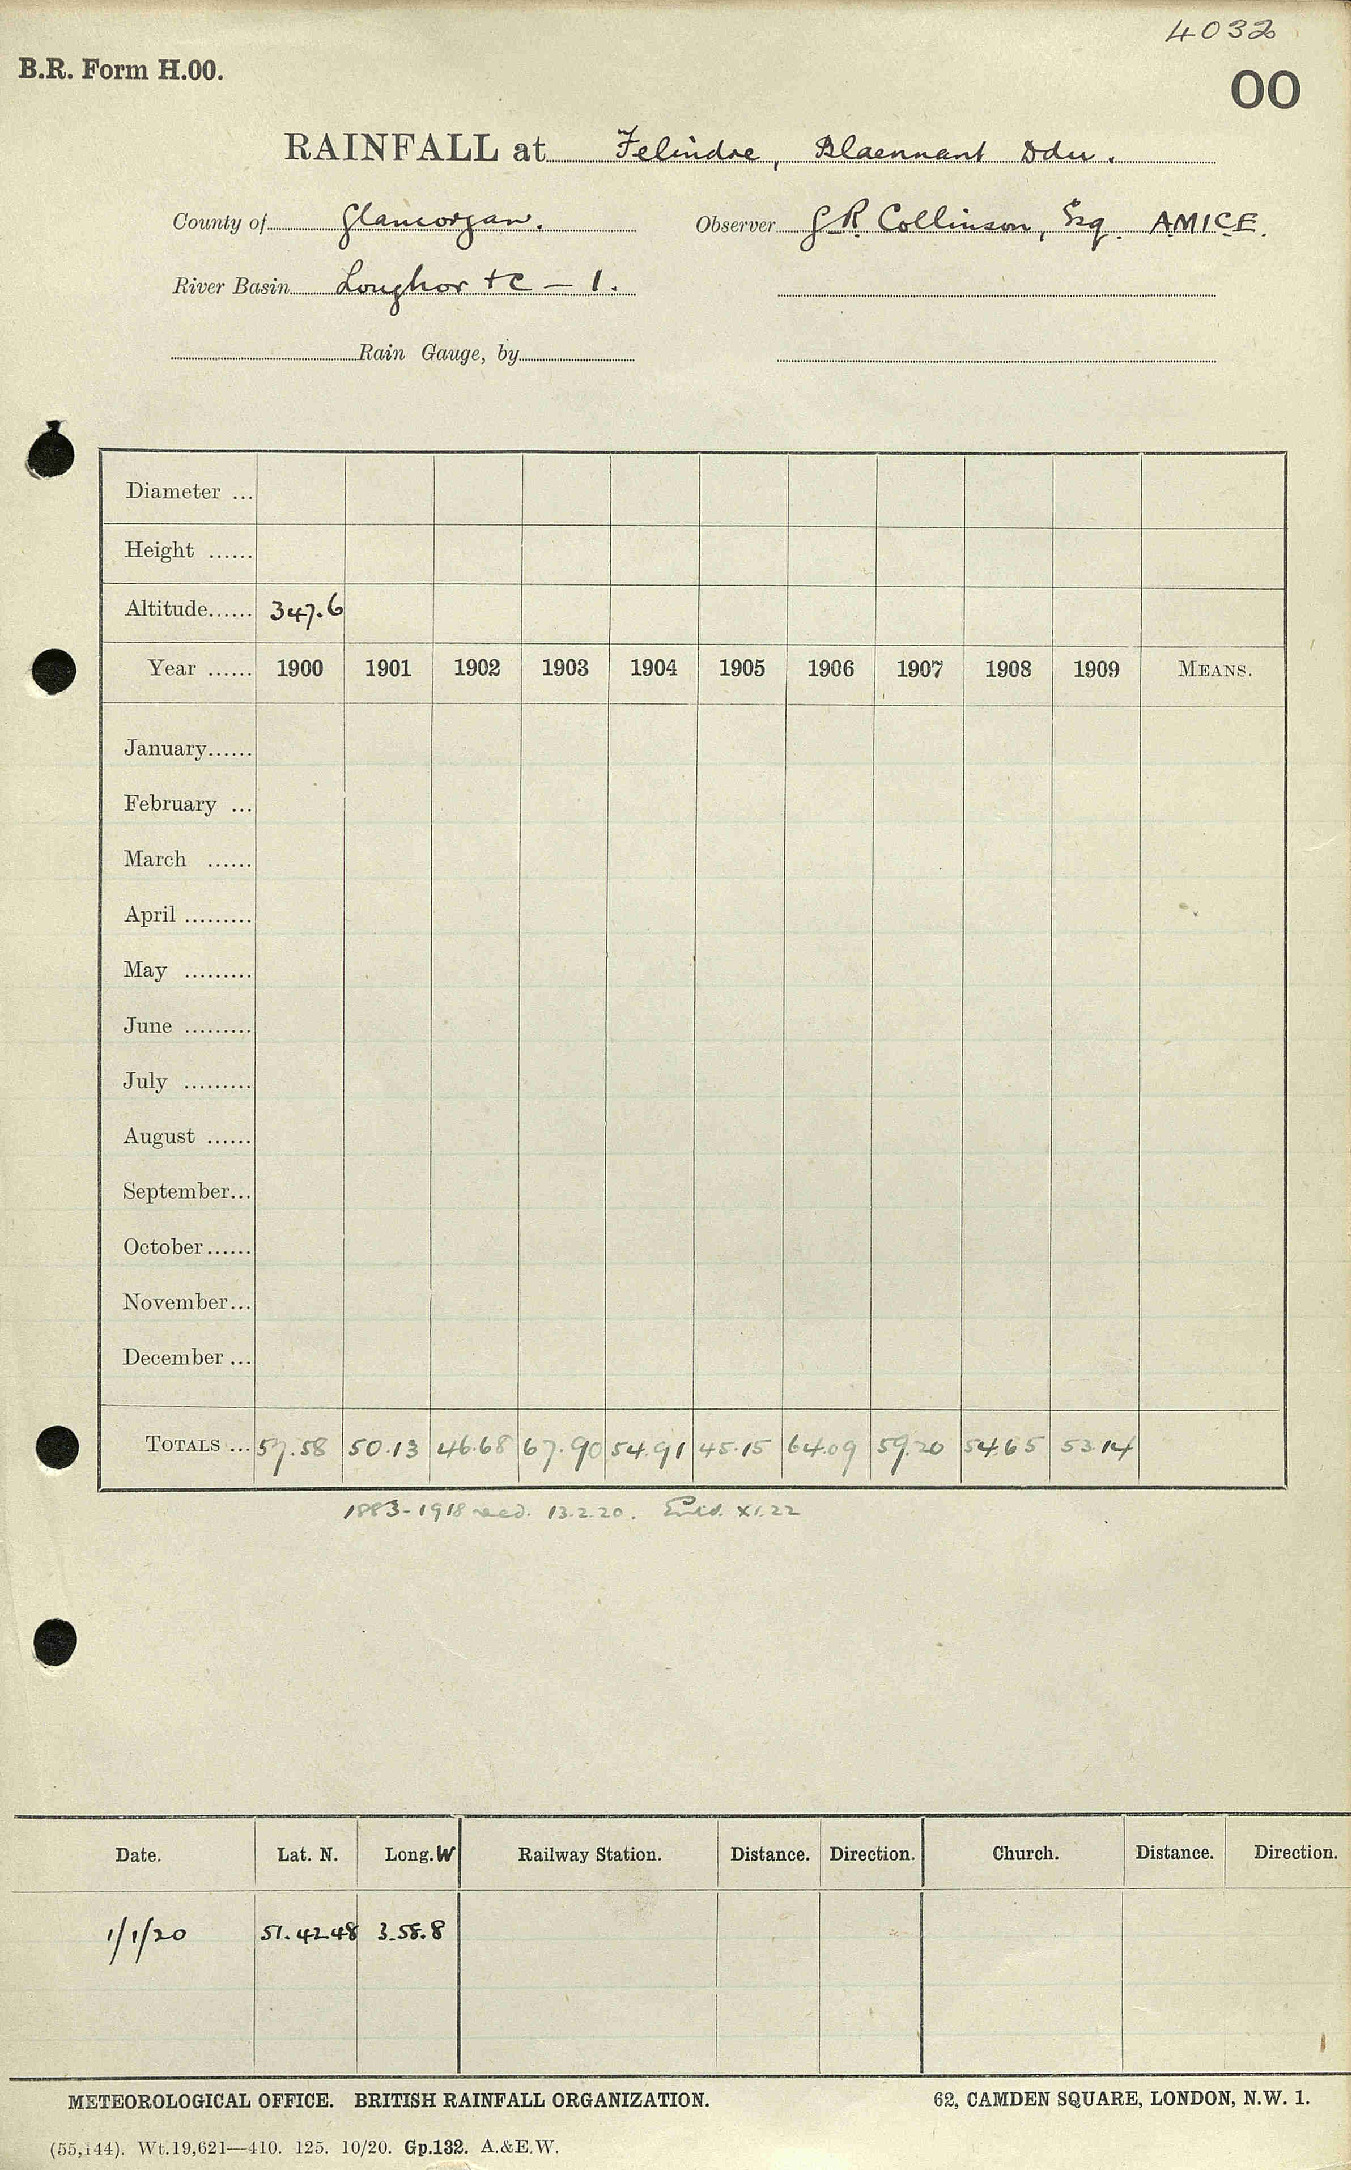 4032
B.R. Form H.00.
00
RAINFALL at Felindre, Blaennant Ddu.
County of Glamorgan. Observer G R Collinson, Esq. AMICE.
River Basin Loughor +c — 1.
Rain Gauge, by
Diameter ...
Height ......
Altitude...... 347.6
Year ...... 1900 1901 1902 1903 1904 1905 1906 1907 1908 1909 MEANS.
January......
February ...
March ......
April .........
May .........
June .........
July .........
August ......
September...
October......
November...
December ...
TOTALS ... 57.58 50.13 46.68 67.90 54.91 45.15 64.09 59.20 54.65 53.14
1883-1918 recd. 13.2.20. XI.22
Date. Lat. N. Long. W Railway Station. Distance. Direction. Church. Distance. Direction.
1/1/20 51.42.48 3.58.8
METEOROLOGICAL OFFICE. BRITISH RAINFALL ORGANIZATION. 62, CAMDEN SQUARE, LONDON, N.W. 1.
(55,144). Wt.19,621—410. 125. 10/20. Gp.132. A.&E.W.